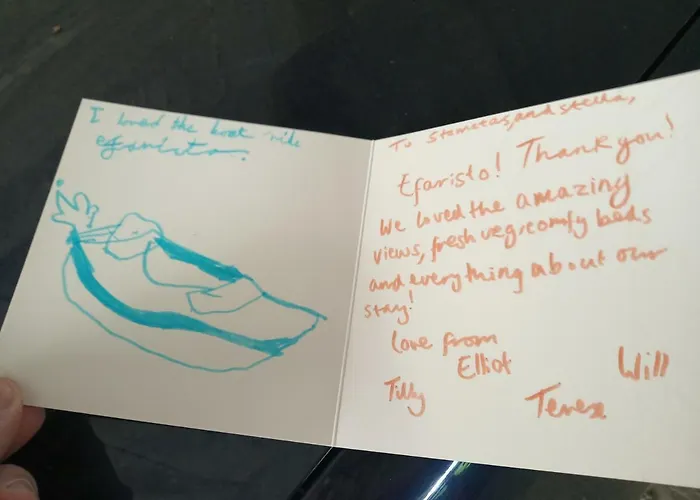 I loved the boat ride
efaristo.
To Stamatas, and stella,
Efaristo! Thank you!
We loved the amazing
views, fresh veg, comfy beds
and everything about our
stay!
Love from
Elliot
Will
Tilly